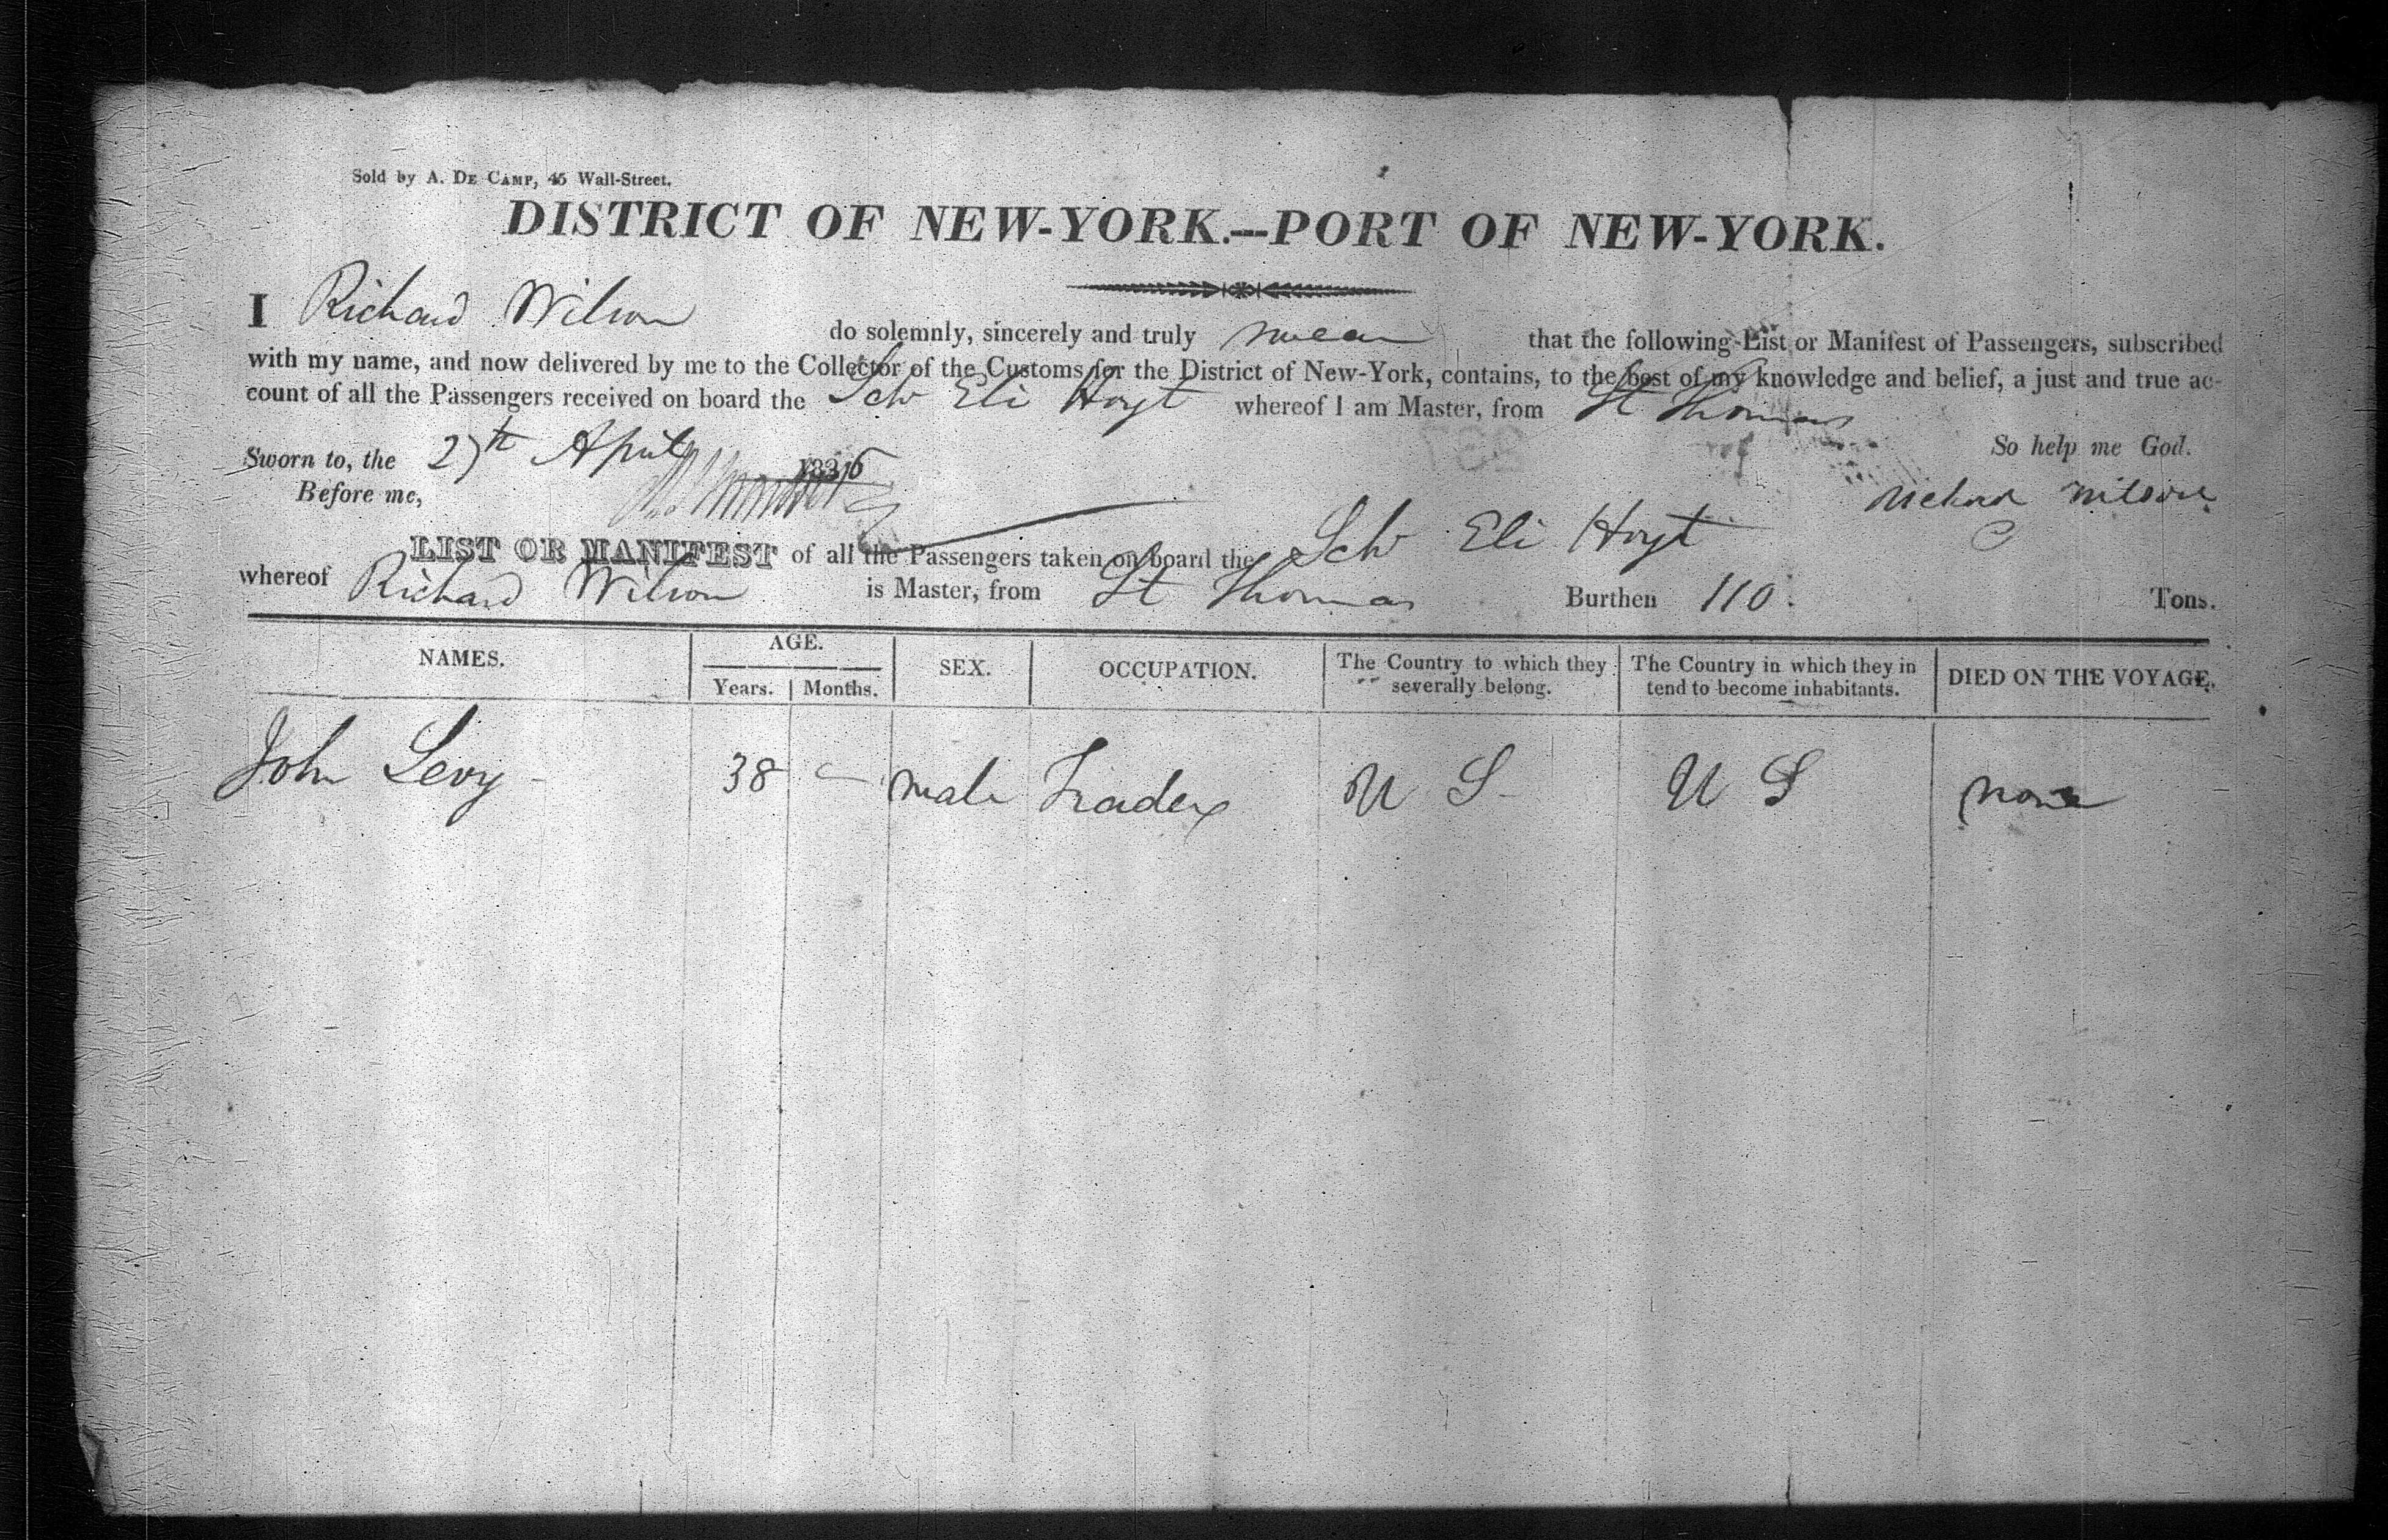 Sold by A. De Camp, 45 Wall-Street.
DISTRICT OF NEW-YORK.—PORT OF NEW-YORK.
I Richard Wilson do solemnly, sincerely and truly swear that the following List or Manifest of Passengers, subscribed
with my name, and now delivered by me to the Collector of the Customs for the District of New-York, contains, to the best of my knowledge and belief, a just and true ac-
count of all the Passengers received on board the Schr Eli Hoyt whereof I am Master, from St Thomas
So help me God.
Sworn to, the 27th April
Before me,
Richard Wilson
LIST OR MANIFEST of all the Passengers taken on board the Schr Eli Hoyt
whereof Richard Wilson is Master, from St Thomas Burthen 110 Tons.
NAMES. AGE. Years. Months. SEX. OCCUPATION. The Country to which they severally belong. The Country in which they in tend to become inhabitants. DIED ON THE VOYAGE.
John Levy 38 — male Trader U S U S none